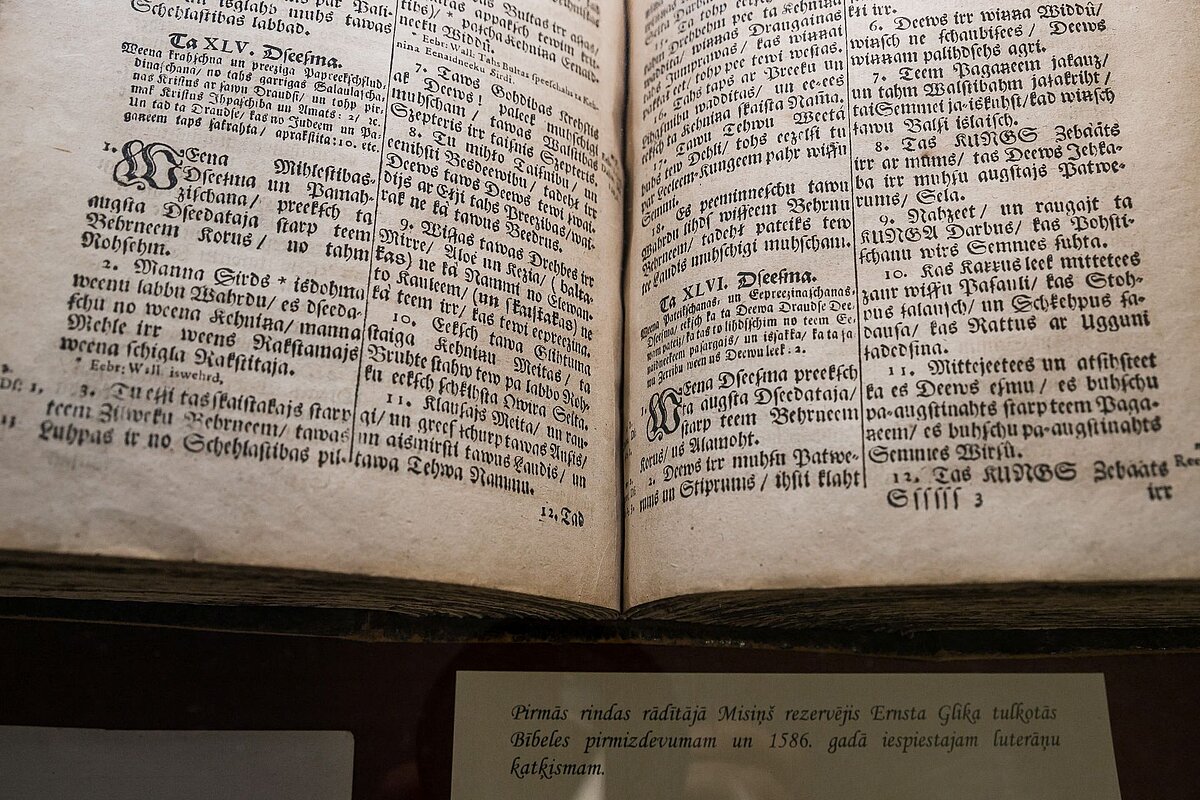 isglahb muhs tawas
Schehlastibas labbad.
Ta XLV. Dseesma.
Weena krahschna un preeziga Papreekschslud-
dinaschana/ no tahs garrigas Salaulascha-
nas Kristus ar sawu Draudsi/ un tohp pir-
mak Kristus Ihpaschiba un Amats: 2/ ꝛc.
Un tad ta Draudse/ kas no Judeem un Pa-
ganeem taps sakrahta/ aprakstita: 10. etc.
1. WEena Mihlestibas-
Dseesma un Pamah-
zischana/ preeksch ta
augsta Dseedataja starp teem
Behrneem Korus/ no tahm
Rohsehm.
2. Manna Sirds * isdohma
weenu labbu Wahrdu/ es dseeda-
schu no weena Kehnina/ manna
Mehle irr weens Rakstamajs
weena schigla Rakstitaja.
* Eebr: Wall: iswehrd,
3. Tu essi tas skaistakajs starp
teem Zilweku Behrneem/ tawas
Luhpas ir no Schehlastibas pil-
neeku Widdû.
* Eebr: Wall: Tahs Bultas
nina Eenaidneeku Sirdî.
7. Taws Gohdibas Krehslis
ak Deews! paleek muhschigi
muhscham/ tawas Walstibas
Szepteris irr taisnis Szepteris.
8. Tu mihlo Taisnibu/ un
eenihsti Besdeewibu/ tadeht irr
Deews taws Deews tewi swai-
dijs ar Elji tahs Preezibas/ wai-
rak ne kâ tawus Beedrus.
9. Wissas tawas Drehbes irr
Mirre/ Aloë un Kezia/ ( balta-
kas) ne kâ Nammi no Elewan-
to Kauleem/ (un skaistakas) ne
kâ teem irr/ kas tewi eepreezina.
10. Eeksch tawa Glihtuma
staiga Kehninu Meitas/ ta
Bruhte stahw tew pa labbo Roh-
ku eeksch schkihsta Owira Selta.
11. Klausajs Meita/ un rau-
gi/ un greef schurp tawas Ausis/
un aismirsti tawus Laudis/ un
tawa Tehwa Nammu.
12. Tad
Drehbehm pee ta Kehnina
16. Tahs taps ar Preeku un
Lihgsmibu wadditas/ un ee-ees
eeksch ta Kehnina skaista Namma.
17. Tawu Tehwu Weeta
buhs tew Dehli/ tohs eezelsi tu
par Leeleem-Kungeem pahr wissu
Semmi.
18. Es peeminneschu tawu
Wahrdu lihds wisseem Behrnu
Behrneem/ tadeht pateiks tew
tee Laudis muhschigi muhscham.
Ta XLVI. Dseesma.
Weena Pateikschanas, un Eepreezinaschanas,
Dseesma/
1. WEena Dseesma preeksch
ta augsta Dseedataja/
starp teem Behrneem
Korus/ us Alamoht.
2. Deews irr muhsu Patwe-
rums un Stiprums/ ihsti klaht
kli irr.
6. Deews irr winna Widdû/
winsch ne schaubisees/ Deews
winnam palihdsehs agri.
7. Teem Paganeem jakauz/
un tahm Walstibahm jakakriht/
tai Semmei ja-iskuhst/ kad winsch
sawu Balsi islaisch.
8. Tas KUNGS Zebaäts
irr ar mums/ tas Deews Jehka-
ba irr muhsu augstajs Patwe-
rums/ Sela.
9. Nahzeet/ un raugajt ta
KUNGA Darbus/ kas Pohsti-
schanu wirs Semmes suhta.
10. Kas Karrus leek mittetees
zaur wissu Pasauli/ kas Stoh-
pus salausch/ un Schkehpus sa-
dausa/ kas Rattus ar Ugguni
sadedsina.
11. Mittejeetees un atsihsteet
ka es Deews esmu/ es buhschu
pa-augstinahts starp teem Paga-
neem/ es buhschu pa-augstinahts
Semmes Wirsû.
12. Tas KUNGS Zebaäts
Sſſſſſ 3
irr
Pirmās rindas rādītājā Misiņš rezervējis Ernsta Glika tulkotās
Bībeles pirmizdevumam un 1586. gadā iespiestajam luterāņu
katķismam.